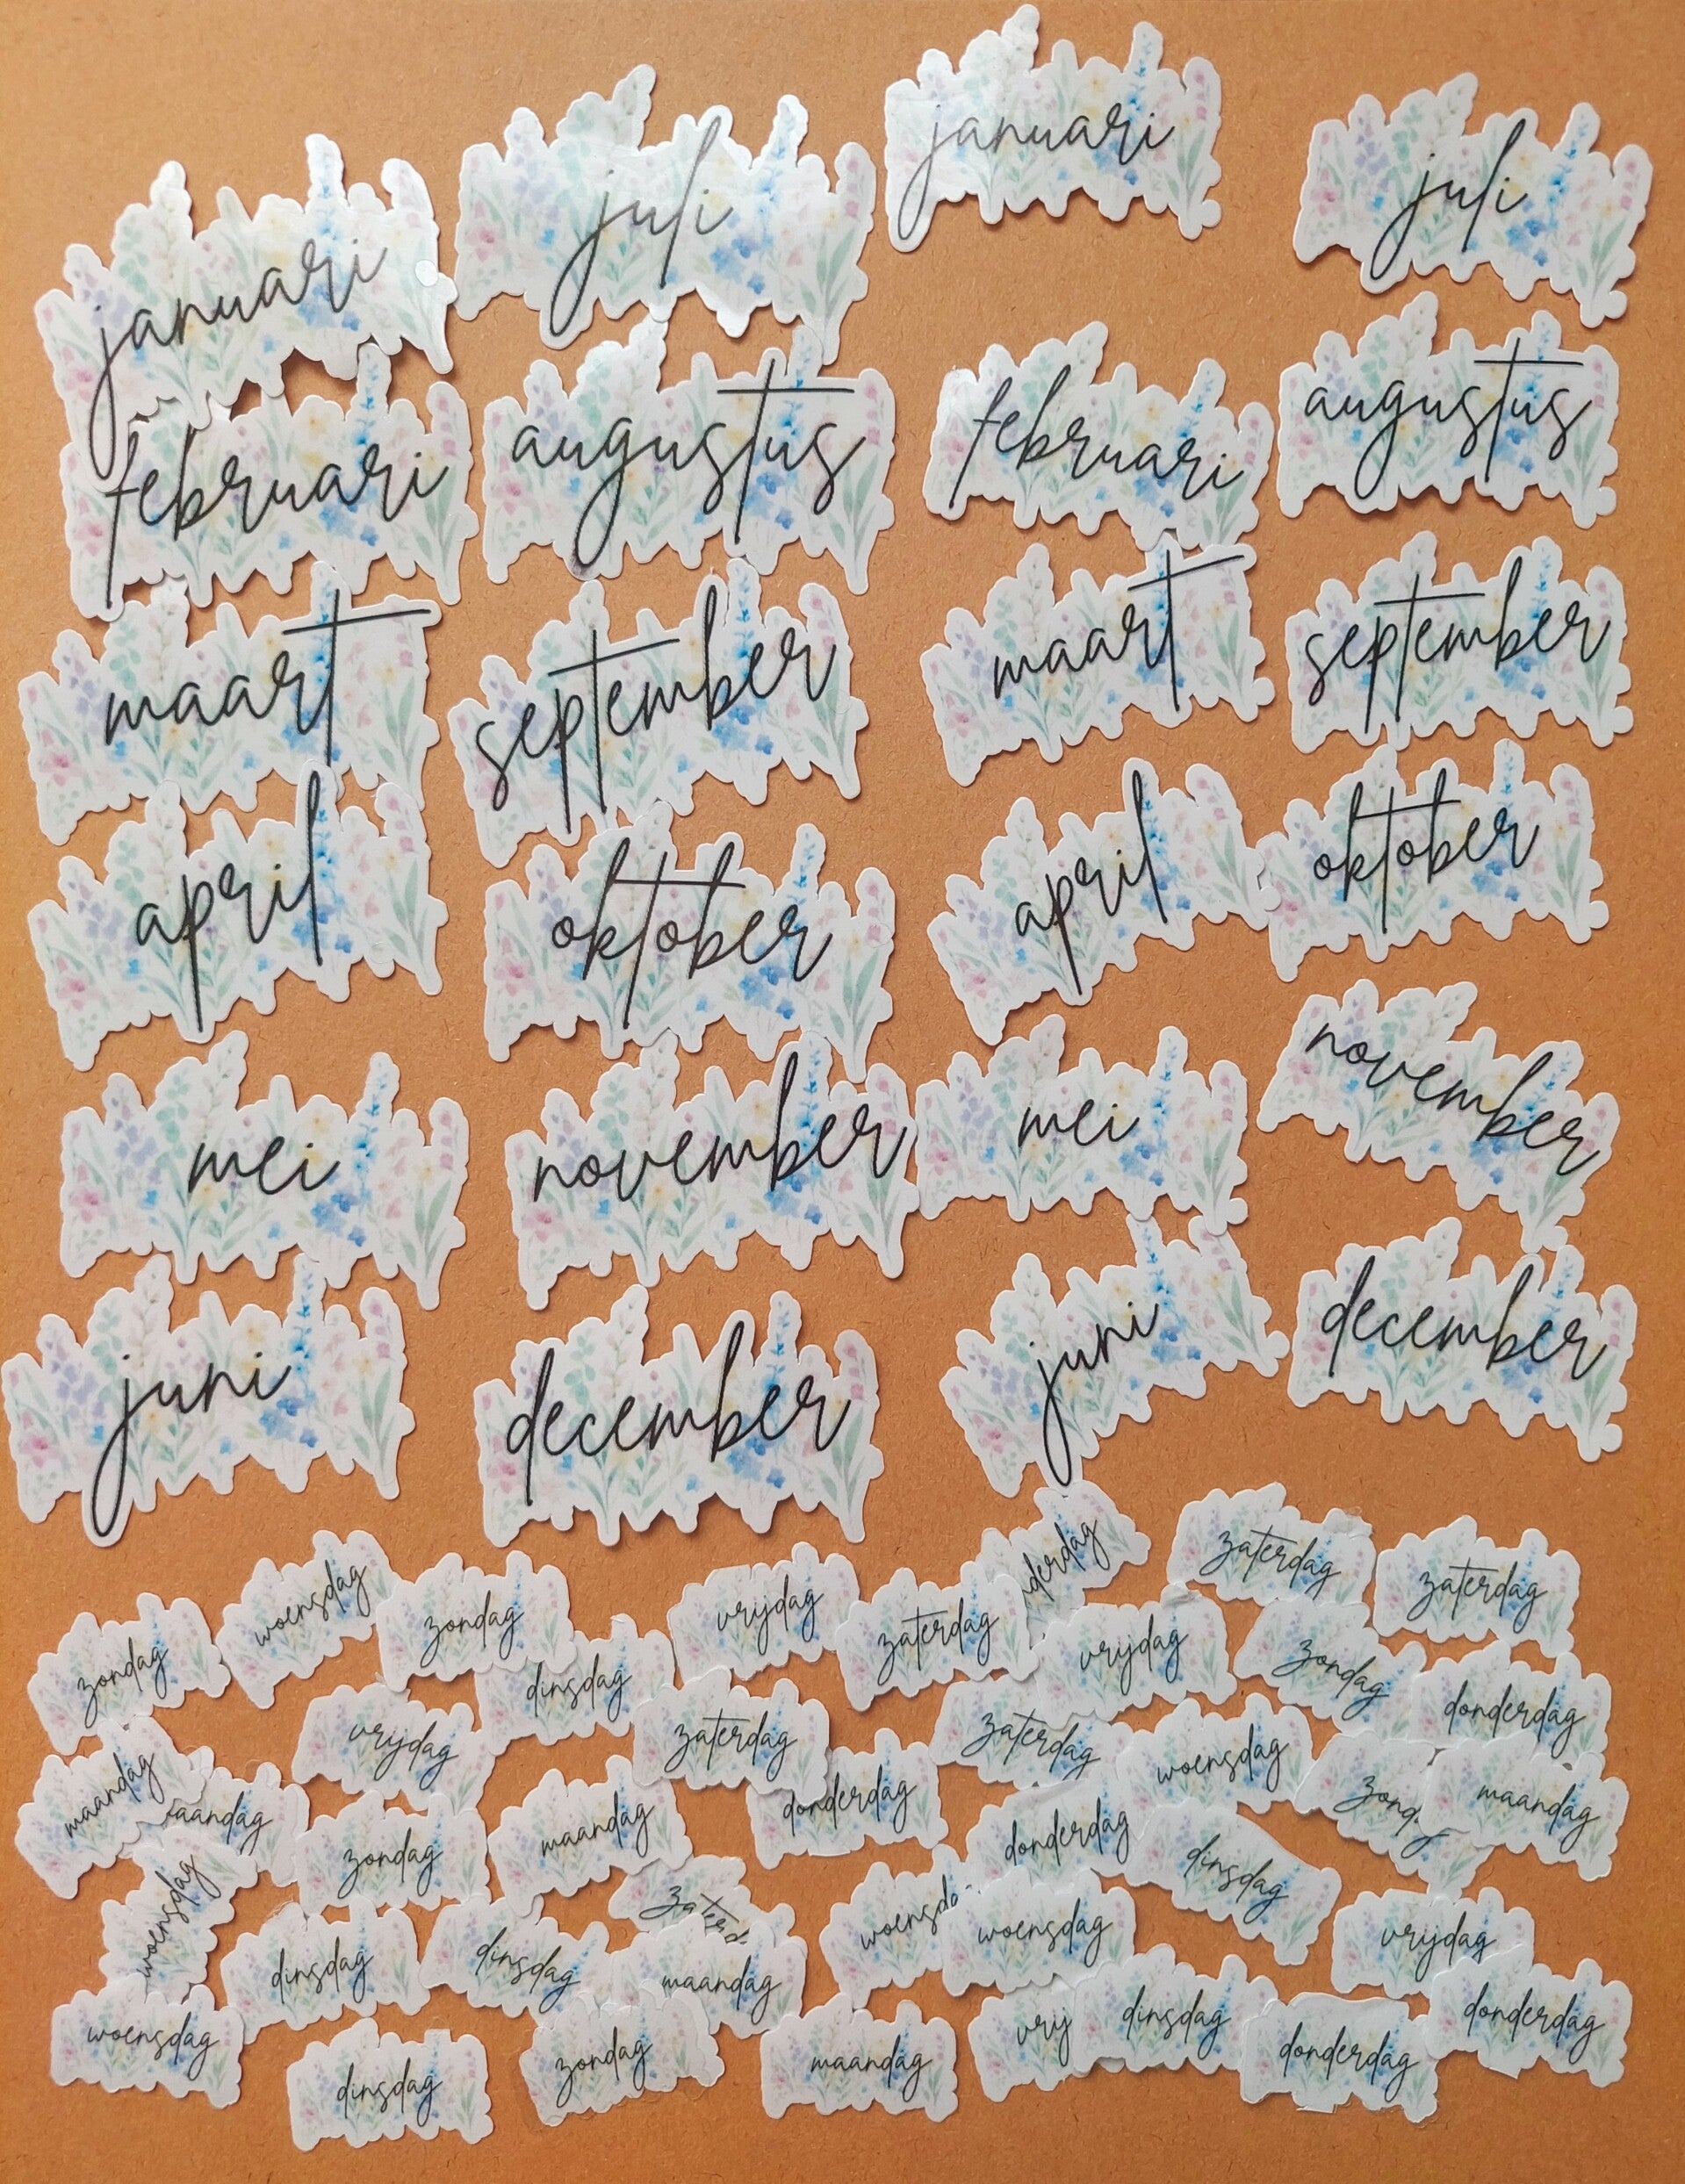 januari
juli
januari
juli
februari
augustus
februari
augustus
maart
september
maart
september
april
oktober
april
oktober
mei
november
mei
november
juni
december
juni
december
woensdag
zondag
vrijdag
zaterdag
derdag
zaterdag
zaterdag
zondag
dinsdag
vrijdag
zondag
donderdag
vrijdag
zaterdag
zaterdag
woensdag
maandag
aandag
zondag
maandag
donderdag
donderdag
dinsdag
zond
maandag
woensdag
dinsdag
dinsdag
zaterd
maandag
woensda
woensdag
vrijdag
woensdag
dinsdag
zondag
maandag
vrij
dinsdag
donderdag
donderdag